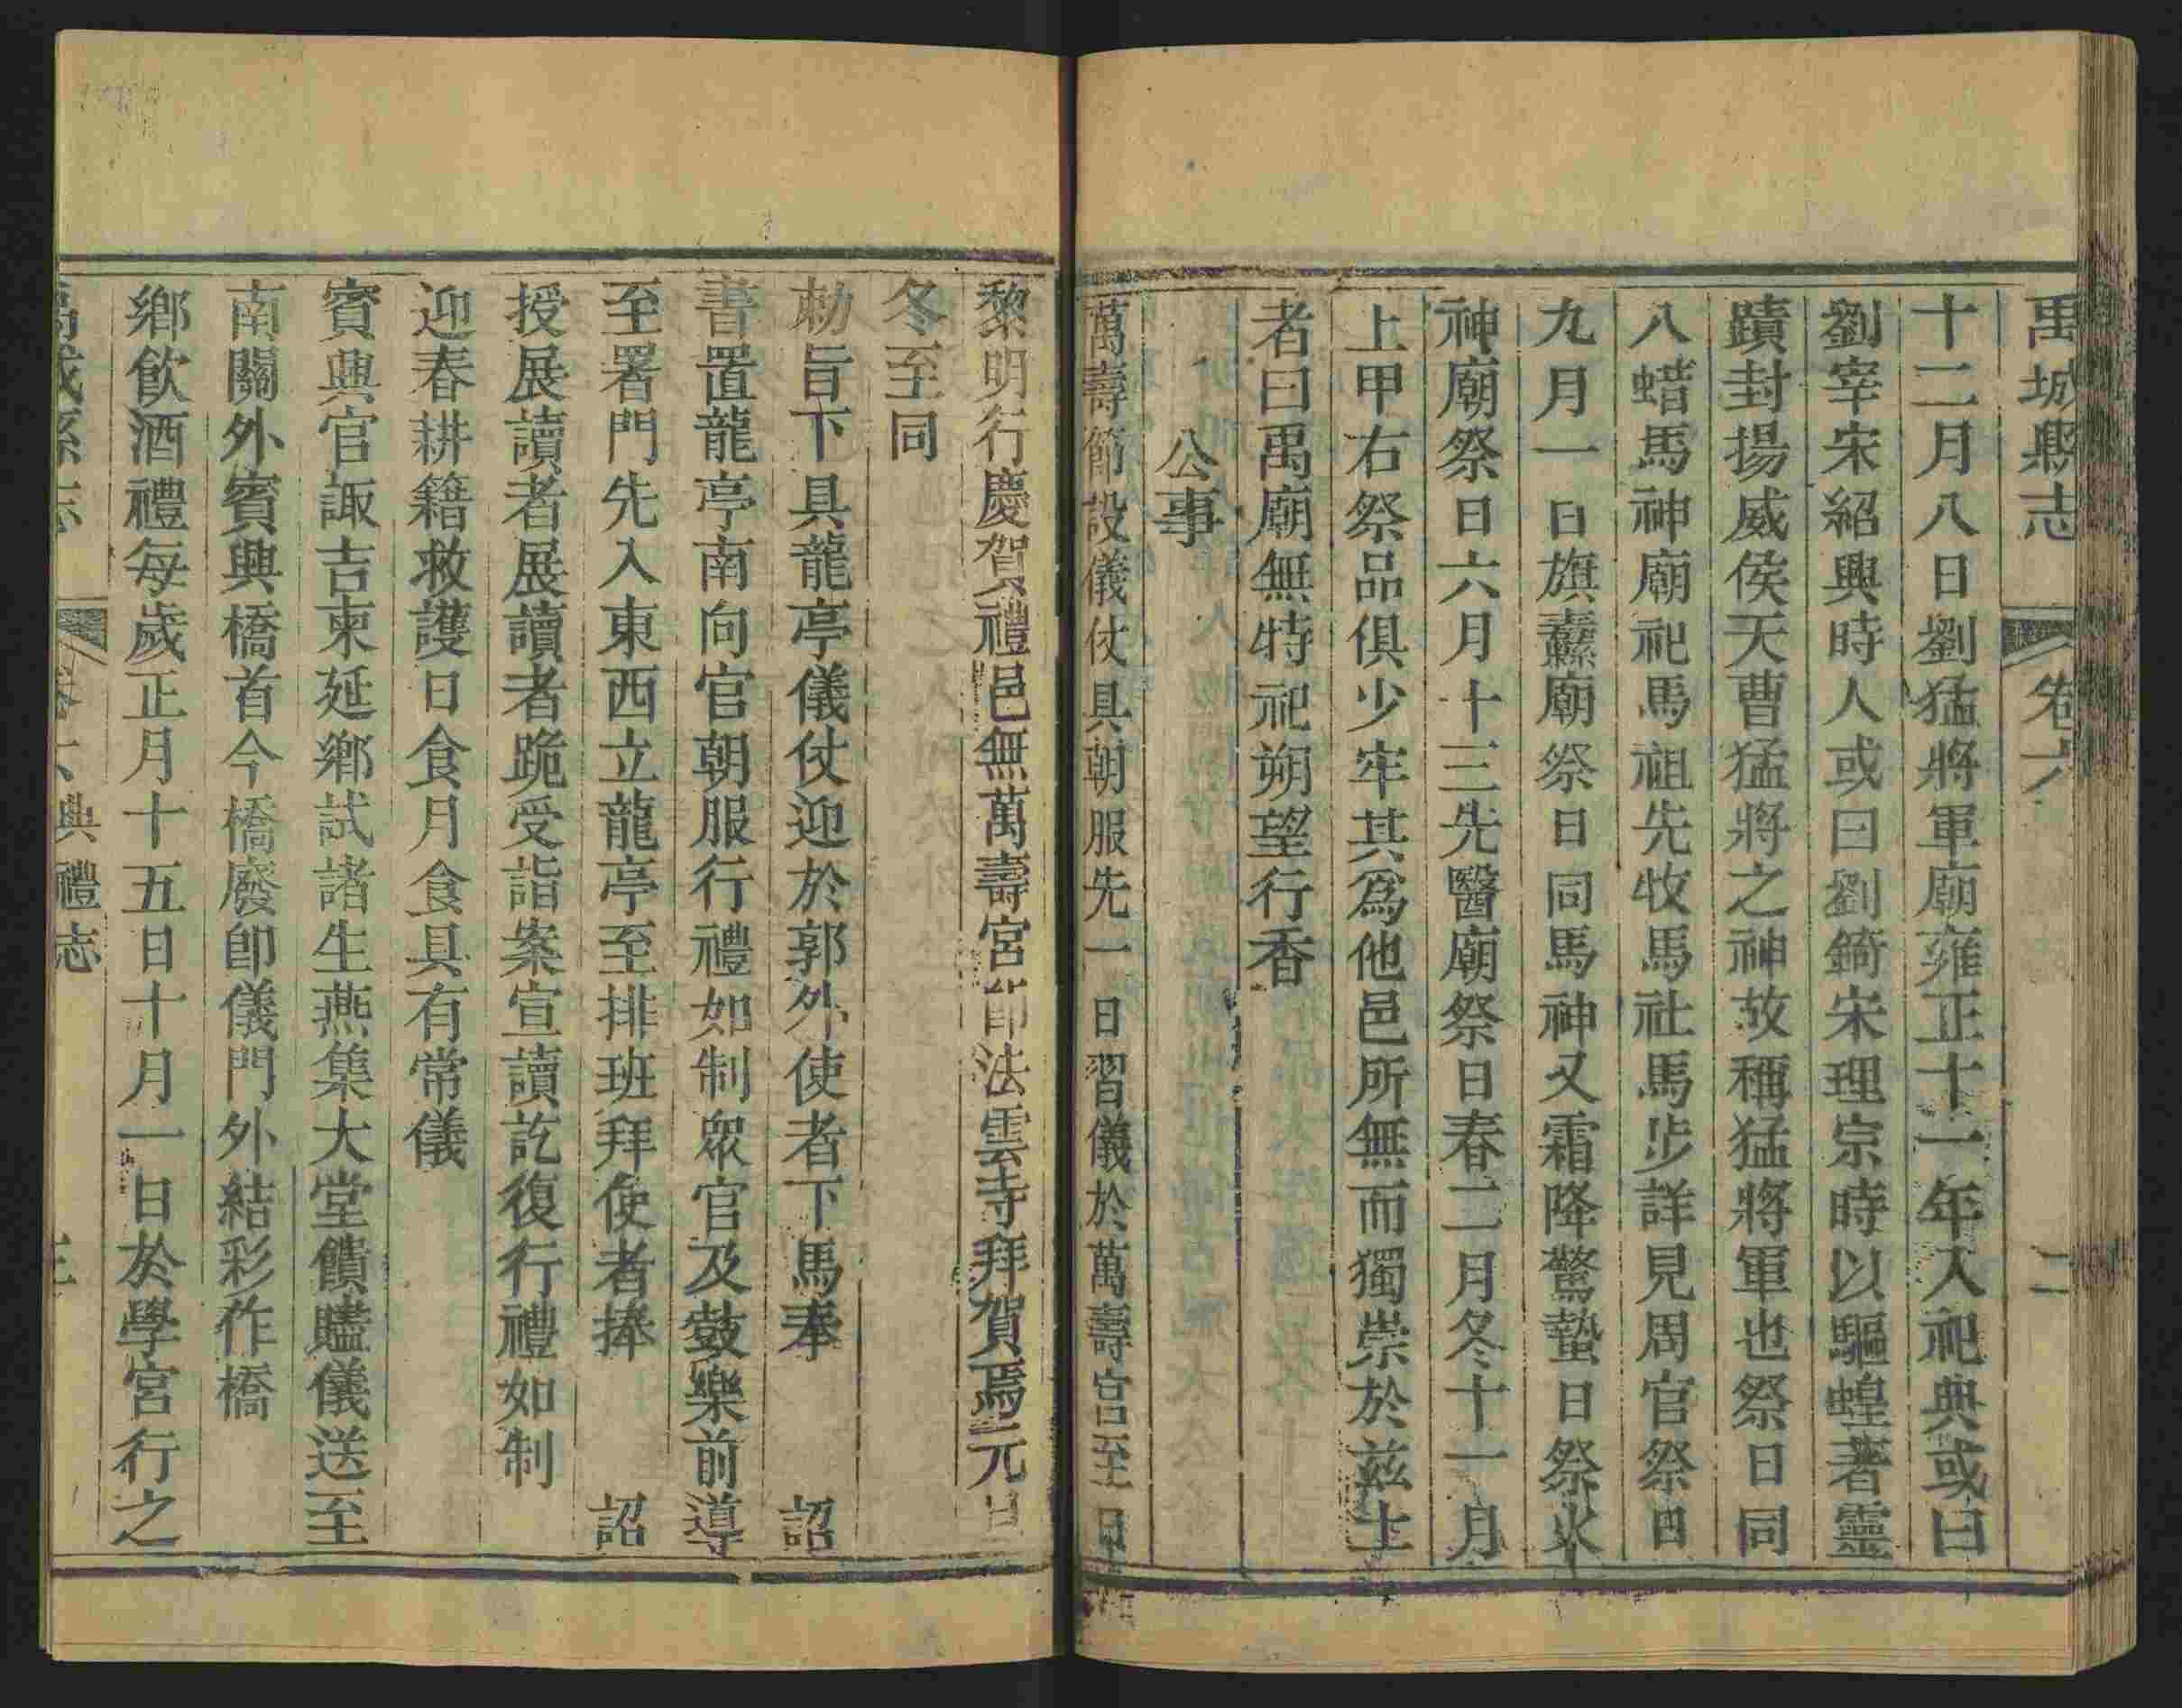 禹城縣志 卷六 二
十二月八日劉猛將軍廟雍正十一年入祀典或曰
劉宰宋紹興時人或曰劉錡宋理宗時以驅蝗著靈
蹟封揚威侯天曹猛將之神故稱猛將軍也祭日同
八蜡馬神廟祀馬祖先牧馬社馬步詳見周官祭四
九月一日旗纛廟祭日同馬神又霜降驚蟄日祭火
神廟祭日六月十三先醫廟祭日春二月冬十一月
上甲右祭品俱少牢其為他邑所無而獨崇於茲土
者曰禹廟無特祀朔望行香
公事
萬壽節設儀仗具朝服先一日習儀於萬壽宮至日
黎明行慶賀禮邑無萬壽宮即法雲寺拜賀焉元旦
冬至同
勅旨下具龍亭儀仗迎於郭外使者下馬奉 詔
書置龍亭南向官朝服行禮如制眾官及鼓樂前導
至署門先入東西立龍亭至排班拜使者捧 詔
授展讀者展讀者跪受詣案宣讀訖復行禮如制
迎春耕籍救護日食月食具有常儀
賓興官諏吉柬延鄉試諸生燕集大堂饋贐儀送至
南關外賓興橋首今橋廢卽儀門外結彩作橋
鄉飲酒禮每歲正月十五日十月一日於學宮行之
禹城縣志 卷六 典禮志 三